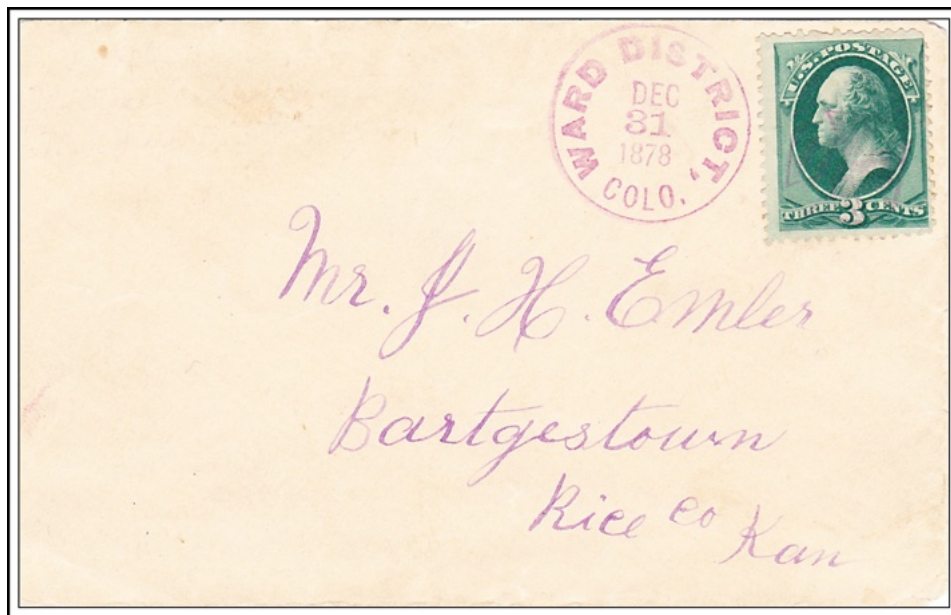 WARD DISTRICT,
DEC
31
1878
COLO.
U.S. POSTAGE
THREE 3 CENTS
Mr. J. H. Emler
Bartgestown
Rice co
Kan